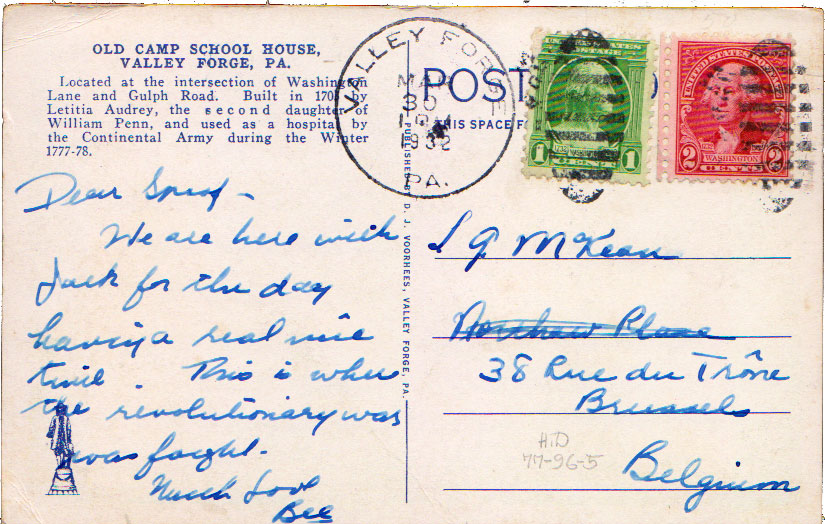 OLD CAMP SCHOOL HOUSE,
VALLEY FORGE, PA.
Located at the intersection of Washington
Lane and Gulph Road. Built in 1705 by
Letitia Audrey, the second daughter of
William Penn, and used as a hospital by
the Continental Army during the Winter
1777-78.
VALLEY FORGE
30
1932
PA.
POST
THIS SPACE
1 1
UNITED STATES POSTAGE
2 WASHINGTON 2
CENTS
PUBLISHED BY D. J. VOORHEES, VALLEY FORGE, PA.
Dear
We are here with
Jack for the day
having a real nice
time. This is where
the revolutionary was
was faught.
Much Love
Bee
McKean
Place
38 Rue du Trône
Brussels
Belgium
HTD
77-96-5